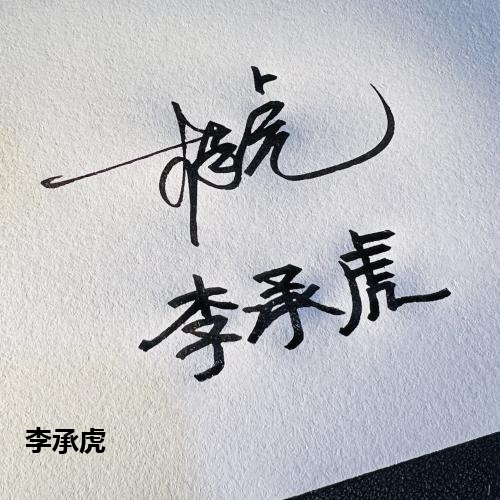 李承虎
李承虎
李承虎